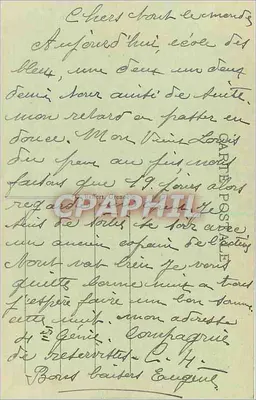 Chers tout le monde
Aujourd'hui, école des
bleu, une deux un deux
demi tour suite de suite
mon retard a passer en
douce. Mon Vieux Louis
du peu au plus nous
faisons que 49 jours alors
regarde
suis de sortie ce soir avec
un ancien copain de
Tout va bien Je vous
quitte bonne nuit a tous
j'espère faire un bon somme
cette nuit. mon adresse
4 es Génie. Compagnie
de reservistes C. 4.
Bons baisers Eugène
CARTE POSTALE
CPAPHIL